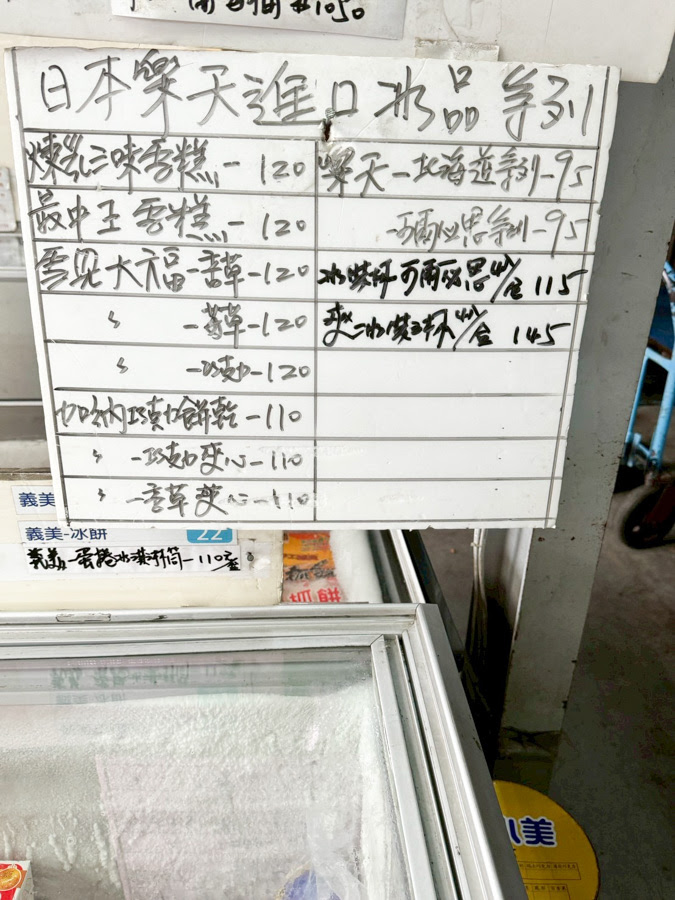 $1050
日本樂天進口冰品系列
煉乳三味雪糕-120
最中王雪糕-120
雪見大福-香草-120
〃 -莓草-120
〃 -巧克力-120
加納巧克力餅乾-110
〃 -巧克力夾心-110
〃 -香草夾心-110
樂天-北海道系列-95
-可爾必思系列-95
冰淇淋可爾必思4入/盒 115
爽-冰淇淋杯4入/盒 145
義美
義美-冰餅 22
義美-蛋捲冰淇淋筒-110元/盒
抓餅
小美